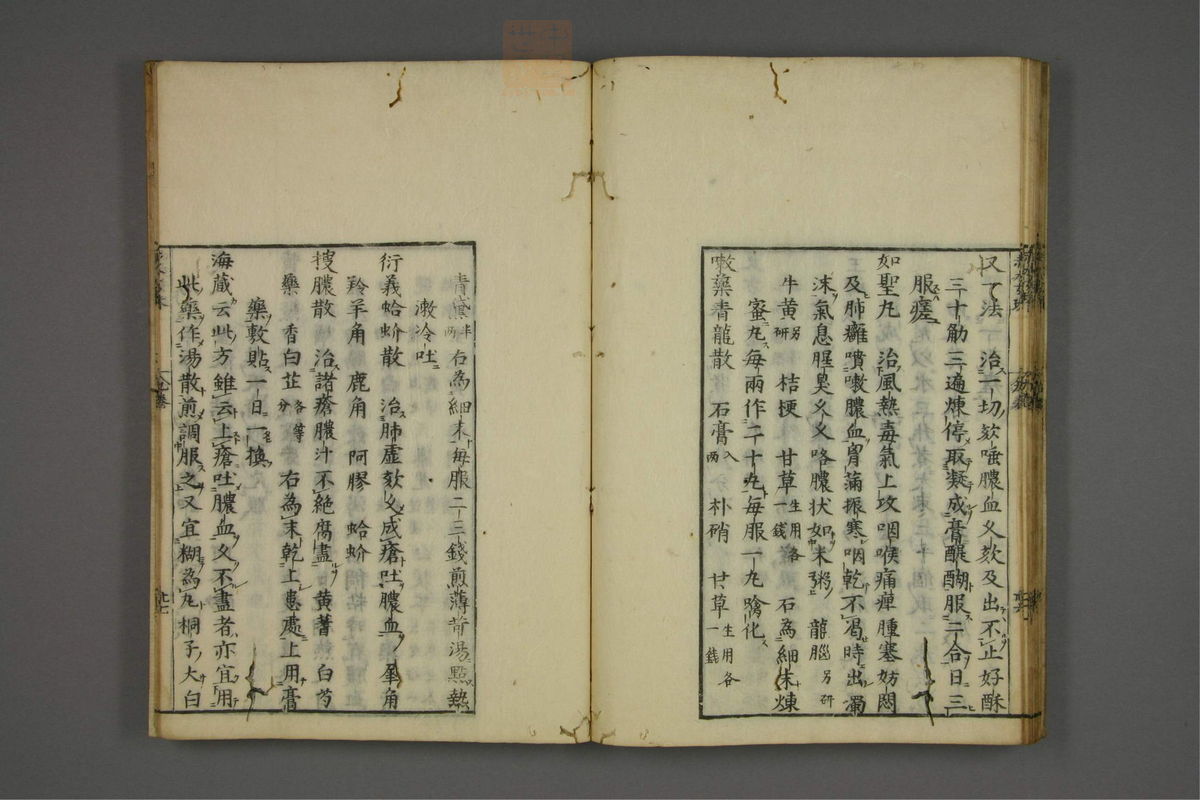 又法 治一切欬唾膿血久欬及出不止好酥
三十觔三遍煉停取凝成膏醍醐服二合日三
服瘥
如聖丸 治風熱毒氣上攻咽喉痛痺腫塞妨悶
及肺癰潰嗽膿血胷滿振寒咽乾不渇時出濁
沫氣息腥臭久久咯膿状如米粥 龍腦另研
牛黄另研 桔梗 甘草生用各一錢 右為細末煉
蜜丸毎兩作二十丸毎服一丸噙化
嗽藥青龍散 石膏八兩 朴硝 甘草生用各一錢
青黛半兩 右為細末毎服二三錢煎薄苛湯點熱
潄冷吐
衍義蛤蚧散 治肺虚欬久成瘡吐膿血 犀角
羚羊角 鹿角 阿膠 蛤蚧
捜膿散 治諸瘡膿汁不絶腐盡 黄蓍 白芍
藥 香白芷各等分 右為末乾上患處上用膏
藥敷貼一日一換
海蔵云此方雖云上瘡吐膿血久不盡者亦宜用
此藥作湯散煎調服之又宜糊為丸桐子大白